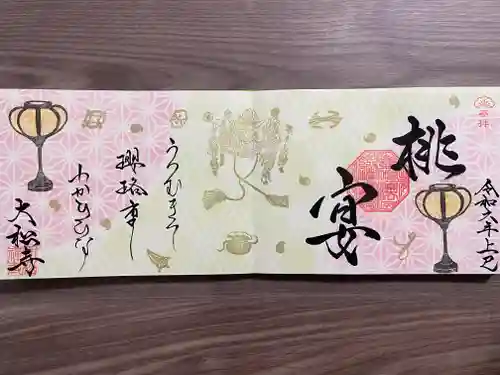 奉拝
桃
宴
令和六年上巳
うつむきて
瓔珞重し
わかひひな
大松寺